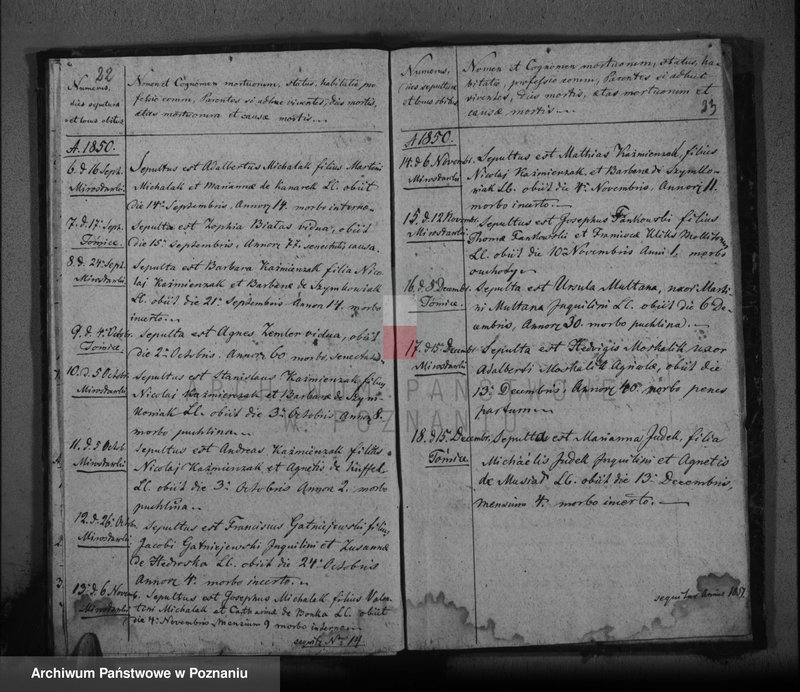 22
Numerus,
dies sepulturae
et locus obitus
Nomen et Cognomen mortuorum, status, habitatio pro
fessio eorum, Parentes si adhuc viventes, dies mortis,
aetas mortuorum et causae mortis.
A. 1850.
6. d. 16 Sept.
Mirosławki
Sepultus est Adalbertus Michalak filius Martini
Michalak et Marianna de Kanarek Ll. obiit
die 14 Septembris, Annor. 14. morbo interno.
7. d. 17. Sept.
Tomice.
Sepulta est Zophia Białas vidua, obiit
die 15. Septembris, Annor. 77. senectutis causa.
8. d. 24 Sept.
Mirosławki
Sepulta est Barbara Kaźmierzak filia Nico
laj Kaźmierzak et Barbarae de Szymkowiak
Ll. obiit die 21. Septembris Annor. 14. morbo
incerto.
9. d. 4. Octobr.
Tomice.
Sepulta est Agnes Zemler vidua, obiit
die 2. Octobris, Annor. 60 morbo senectutis.
10. d. 5 Octobr.
Mirosławki
Sepultus est Stanislaus Kaźmierzak filius
Nicolaj Kaźmierzak et Barbarae de Szym
kowiak Ll. obiit die 3. Octobris Annor. 8.
morbo puchlina.
11. d. 5 Octob.
Mirosławki
Sepultus est Andreas Kaźmierzak filius
Nicolaj Kaźmierzak et Agnetis de
Ll. obiit die 3. Octobris Annor. 2. morbo
puchlina.
12. d. 26. Octobr.
Mirosławki
Sepultus est Franciscus Gatniejewski filius
Jacobi Gatniejewski Inquilini et Zusanna
de Ll. obiit die 24. Octobris
Annor. 4. morbo incerto.
13. d. 6 Novemb.
Mirosławki
Sepultus est Josephus Michalak filius Valen
tini Michalak et Catharina de Bonka Ll. obiit
die 4. Novembris, Mensium 9 morbo interno
sequitr. Nr. 14
23
Numerus,
dies sepulturae
et locus obitus
Nomen et Cognomen mortuorum, status, ha
bitatio, professio eorum, Parentes si adhuc
viventes, dies mortis, aetas mortuorum et
causae mortis.
A 1850.
14. d. 6 Novembr.
Mirosławki
Sepultus est Mathias Kaźmierzak, filius
Nicolaj Kaźmierzak, et Barbara de Szymko
wiak Ll. obiit die 4. Novembris, Annor. 11.
morbo incerto.
15. d. 12 Novembr.
Mirosławki
Sepultus est Josephus Fankowski filius
Thoma Fankowski et Francisca Kliks
Ll. obiit die 10 Novembris Anni 1. morbo
suchoby
16. d. 8 Decembr.
Tomice.
Sepulta est Ursula Multana, uxor Marti
ni Multana Inquilini Ll. obiit die 6 De
cembris, Annor. 30. morbo puchlina.
17. d. 15 Decembr.
Mirosławki
Sepulta est Hedvigis Moskalik uxor
Adalberti Moskalik Agricolae, obiit die
13. Decembris Annor. 40. morbo penes
partum
18. d. 15. Decembr.
Tomice
Sepulta est Marianna Judek, filia
Michaëlis Judek Inquilini et Agnetis
de Musiał Ll. obiit die 13. Decembris,
mensium 4. morbo incerto.
sequitur Annus 1851
Archiwum Państwowe w Poznaniu